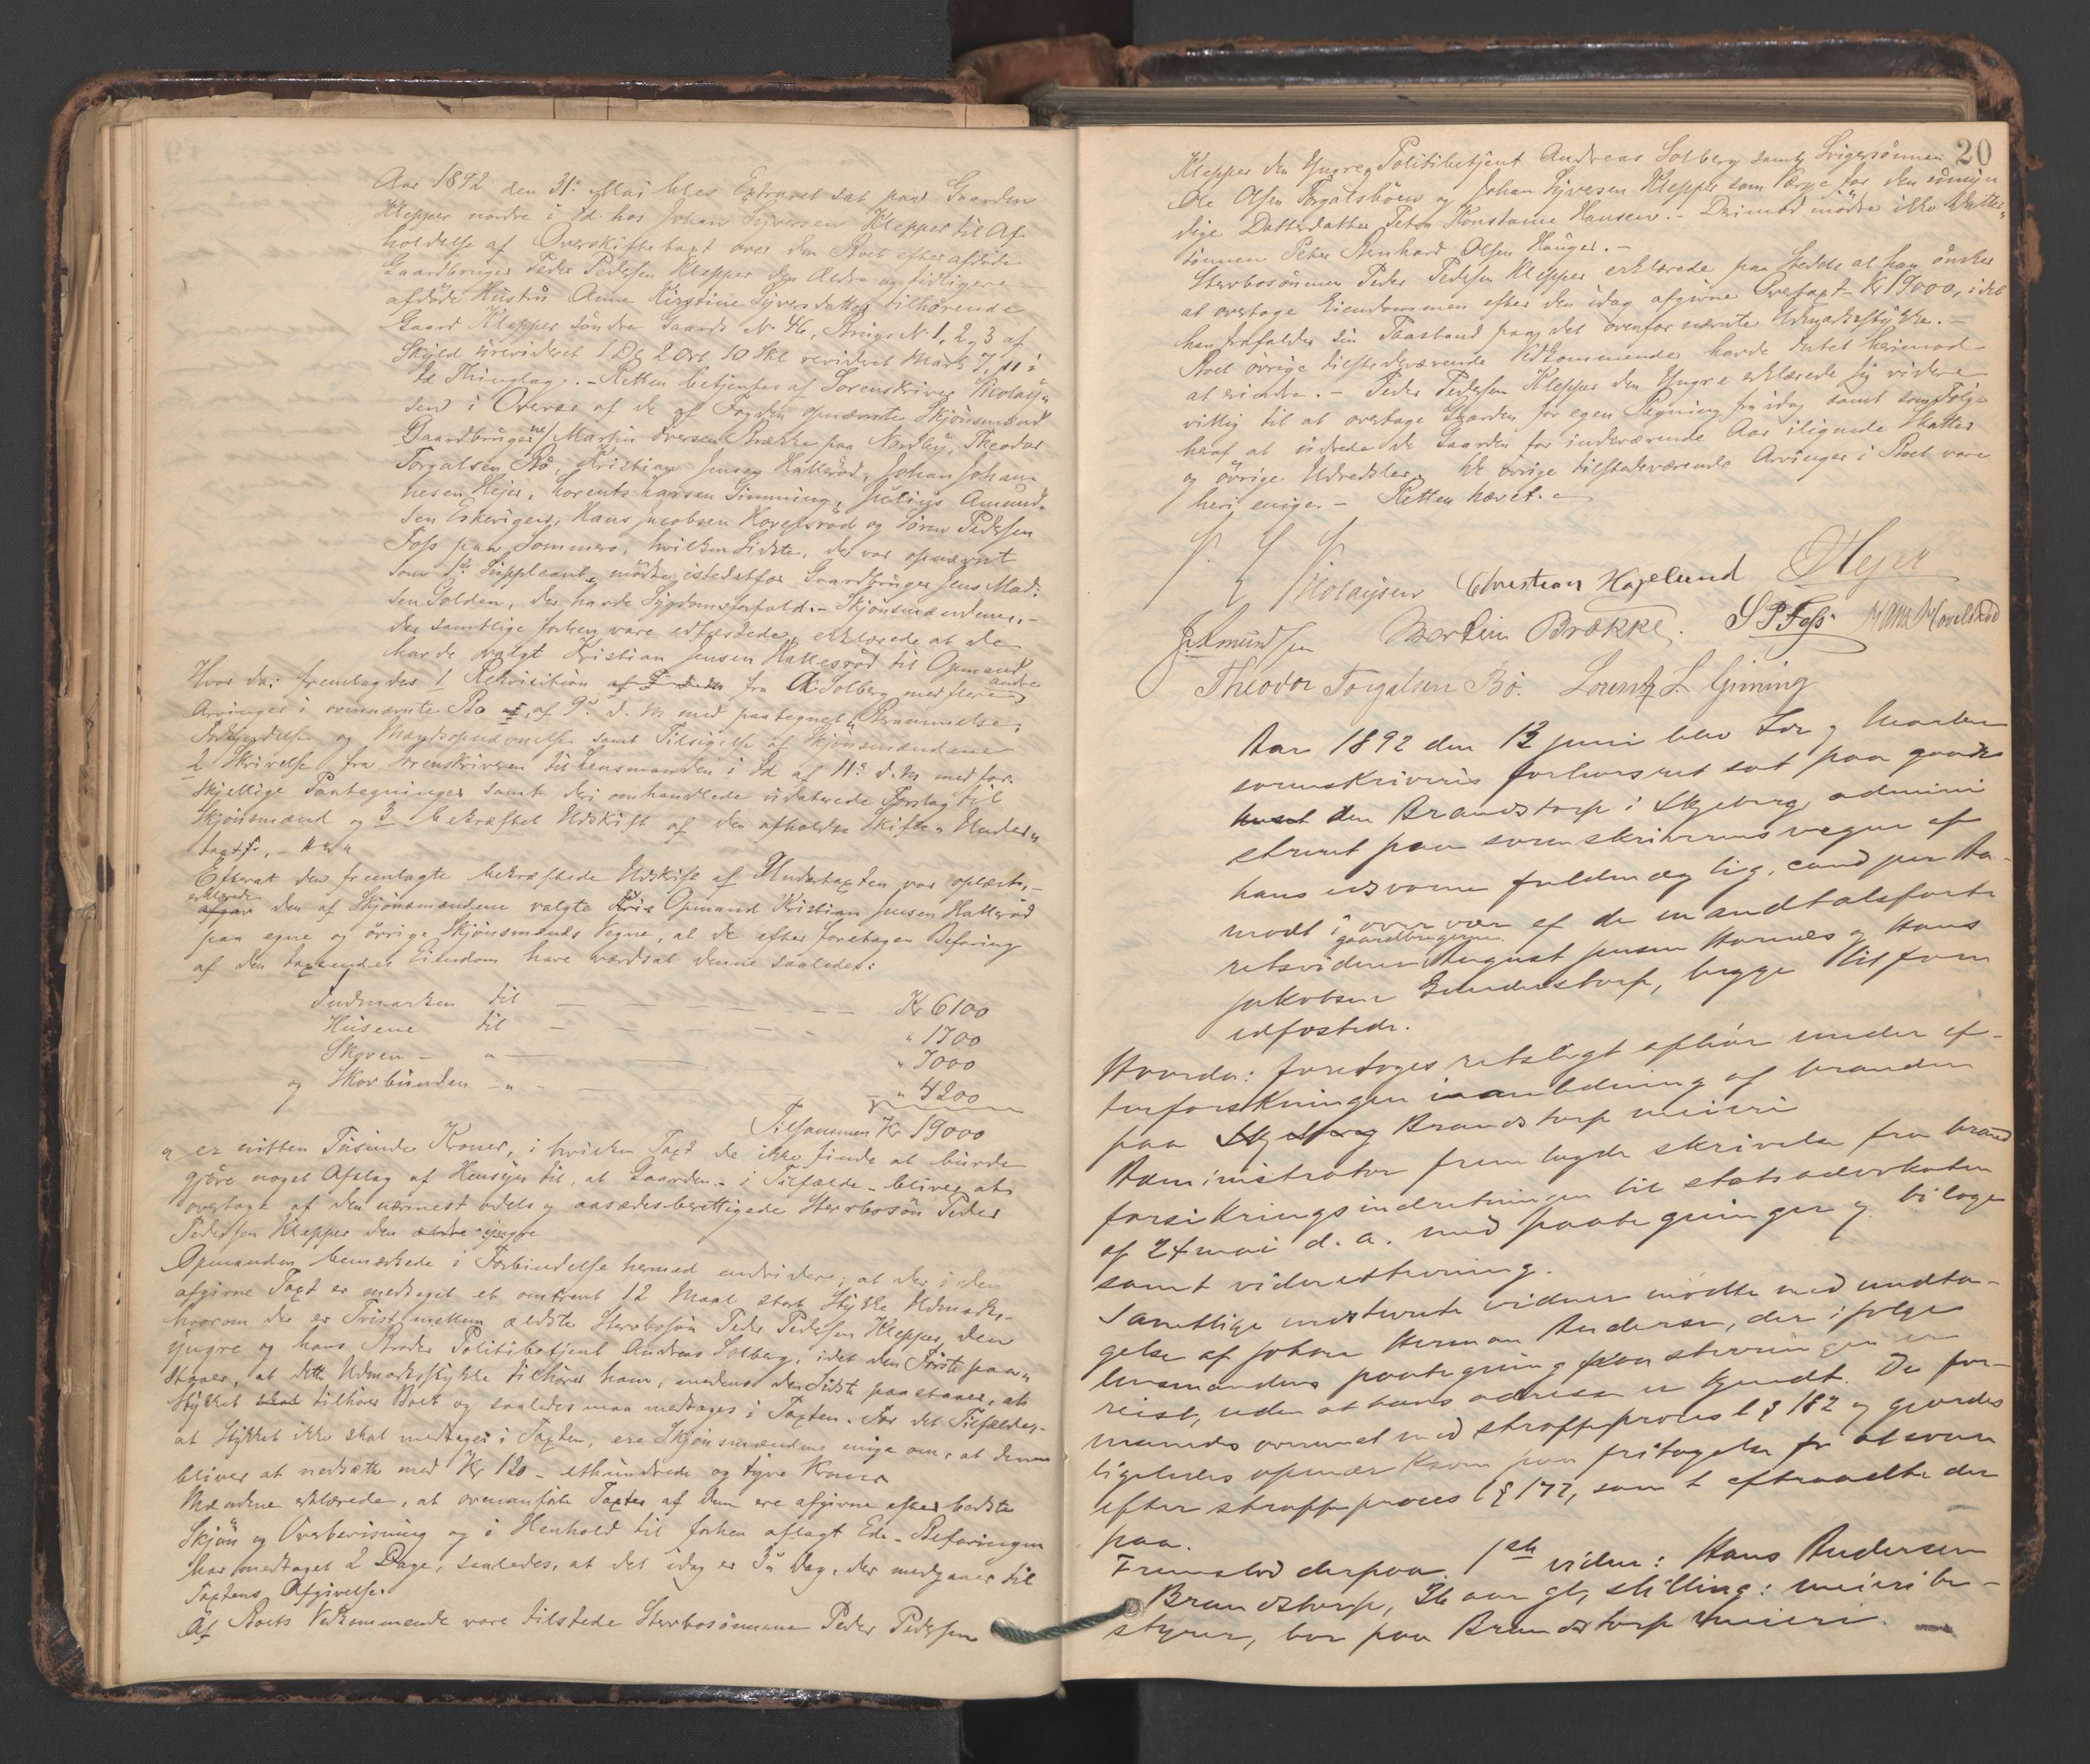 Aar 1892 den 31te Mai blev Extraret sat paa Gaarden
Klepper nordre i Id hos Johan Syversen Klepper til Af-
holdelse af Overskiftetaxt over den Boet efter afdøde
Gaardbruger Peder Pedersen Klepper den Ældre og tidligere
afdøde Hustru Anne Kirstine Syversdatter tilhørende
Gaard Klepper søndre Gaards No 46, Brugs No 1, 2 og 3 af
Skyld urevideret 1 Dlr 2 Ort 10 Skl revideret Mark 7,11 i
Id Thinglag. - Retten betjentes af Sorenskriver Nicolay-
sen i Overvær af de af Fogden opnævnte Skjønsmænd
Gaardbrugerne Martin Iversen Brække paa Nordby, Theodor
Torgalsen Bø, Kristian Jensen Hallerød, Johan Johan-
nesen Hejer, Lorents Larsen Gimming, Julius Amund-
sen Eskevigen, Hans Jacobsen Hovelsrød og Søren Pedersen
Foss paa Sommero, hvilken Sidste, der var opnævnt
som 1ste Suppleant, mødte istedetfor Gaardbruger Jens Mad-
sen Solden, der havde Sygdomsforfald. - Skjønsmændene, -
der samtlige forhen vare edfæstede, erklærede at de
havde valgt Kristian Jensen Hallesrød til Opmand
Hvor da: fremlagdes 1 Rekvisition fra A Solberg med flere andre
Arvinger i ovennævnte Bo af 9de d. M med paategnet Berammelse,
Forkyndelse og Mandsopnævnelse samt Tilsigelse af Skjønsmændene
2 Skrivelse fra Sorenskriveren til Lensmanden i Id af 11te d. M med for-
skjellige Paategninger samt deri omhandlede udaterede Forslag til
Skjønsmænd og 3 bekræftet Udskrift af den afholdte Skifte- Under-
taxtf. -
Efterat den fremlagte bekræftede Udskift af Undertaxten var oplæst, -
erklærede
afgav den af Skjønsmændene valgte Opmand Kristian Jensen Hallerød
paa egne og øvrige Skjønsmænds Vegne, at de efter foretagen Befaring
af den taxerendes Eiendom have værdsat denne saaledes:
Indmarken til - - - - Kr 6100
Husene til - - - - " 1700
Skoven - " - - " 7000
og Skovbunden - " - " 4200
Tilsammen Kr 19000
er nitten Tusinde Kroner, i hvilken Taxt de ikke finde at burde
gjøre noget Afslag af Hensyn til, at Gaarden - i Tilfælde - bliver at
overtage af den nærmest odels og aasædesberettigede Stervbosøn Peder
Pedersen Klepper den ældre yngre
Opmanden bemærkede i Forbindelse hermed endvidere, at der i den
afgivne Taxt er medtaget et omtrent 12 Maal stort Stykke Udmark, -
hvorom der er Tvist mellem ældste Stervbosøn Peder Pedersen Klepper, den
yngre og hans Broder Politibetjent Andreas Solberg, idet den Første paa-
staaer, at dette Udmarksstykke tilhører ham, medens den Sidste paastaaer, at
Stykket skal tilhøre Boet og saaledes maa medtages i Taxten. For det Tilfælde, -
at Stykket ikke skal medtages i Taxten, ere Skjønsmændene enige om, at denne
bliver at nedsætte med Kr 120 - ethundrede og tyve Kroner
Mændene erklærede, at ovenanførte Taxter af dem ere afgivne efter bedste
Skjøn og Overbevisning og i Henhold til forhen aflagt Ed. - Befaringen
har medtaget 2 Dage, saaledes, at det idag er 3die Dag, der medgaaer til
Taxtens Afgivelse.
Af Boets Vedkommende vare tilstede Stervbosønnene Peder Pedersen
20
Klepper den Yngre, Politibetjent Andreas Solberg samt Svigersønnen
Ole Olsen Torgalsbøen og Johan Syversen Klepper som Værge for den umyn-
dige Datterdatter Petra Konstanse Hansen. - Derimod mødte ikke Datter-
sønnen Peter Bernhard Olsen Hauger. -
Stervbosønnen Peder Pedersen Klepper erklærede paa Stedet at han ønsker
at overtage Eiendommen efter den idag afgivne Overtaxt Kr 19000, idet
han frafalder sin Paastand paa det ovenfor nævnte Udmarksstykke. -
Boets øvrige tilstedeværende Vedkommende havde Intet herimod
at erindre. - Peder Pedersen Klepper den Yngre erklærede sig videre
villig til at overtage Gaarden for egen Regning fra idag samt som Følge
heraf at udrede de Gaarden for indeværende Aar ilignede Skatter
og øvrige Udredsler. De øvrige tilstedeværende Arvinger i Boet vare
heri enige. - Retten hævet. -
Nicolaysen Christian Hagelund Hejer
J. Amundsen Martin Brække. S P Foss Hans Hovelsrød
Theodor Torgalsen Bø. Lorentz L. Gimming
Aar 1892 den 13 juni blev Ide og Marker
sorenskriveris forhørsret sat paa gaarden
Brandstorp i Skjeberg, admini
streret paa sorenskriverens vegne af
hans edsvorne fuldmægtig, cand jur Aa-
modt i overvær af de mandtalsførte
gaardbrugerne
retsvidner August Jensen Hornæs og Hans
Jakobsen Gunderstorp, begge tilforn
edfæstede.
Hvorda: foretoges retsligt efhør under ef-
terforskningen i anledning af branden
paa Skjeberg Brandstorp meieri
Administrator fremlagde skrivelse fra brand
forsikringsindretningen til statsadvokaten
af 24 mai d. a. med paategninger og bilage
samt vidnestevning.
Samtlige indstevnte vidner mødte med undta-
gelse af Johan Herman Andersen, der ifølge
lensmandens paategning paa stevningen er
reist, uden at hans adresse er kjendt. De for-
manedes overensst m straffeproces l § 182 og gjordes
ligeledes opmærksom paa fritagelse for at svare
efter straffeproces l § 177, samt eftraadte der
paa.
Fremstod derpaa. 1ste vidne: Hans Andersen
Brandstorp, 36 aar gl, stilling: meieribe-
styrer, bor paa Brandstorp meieri. -